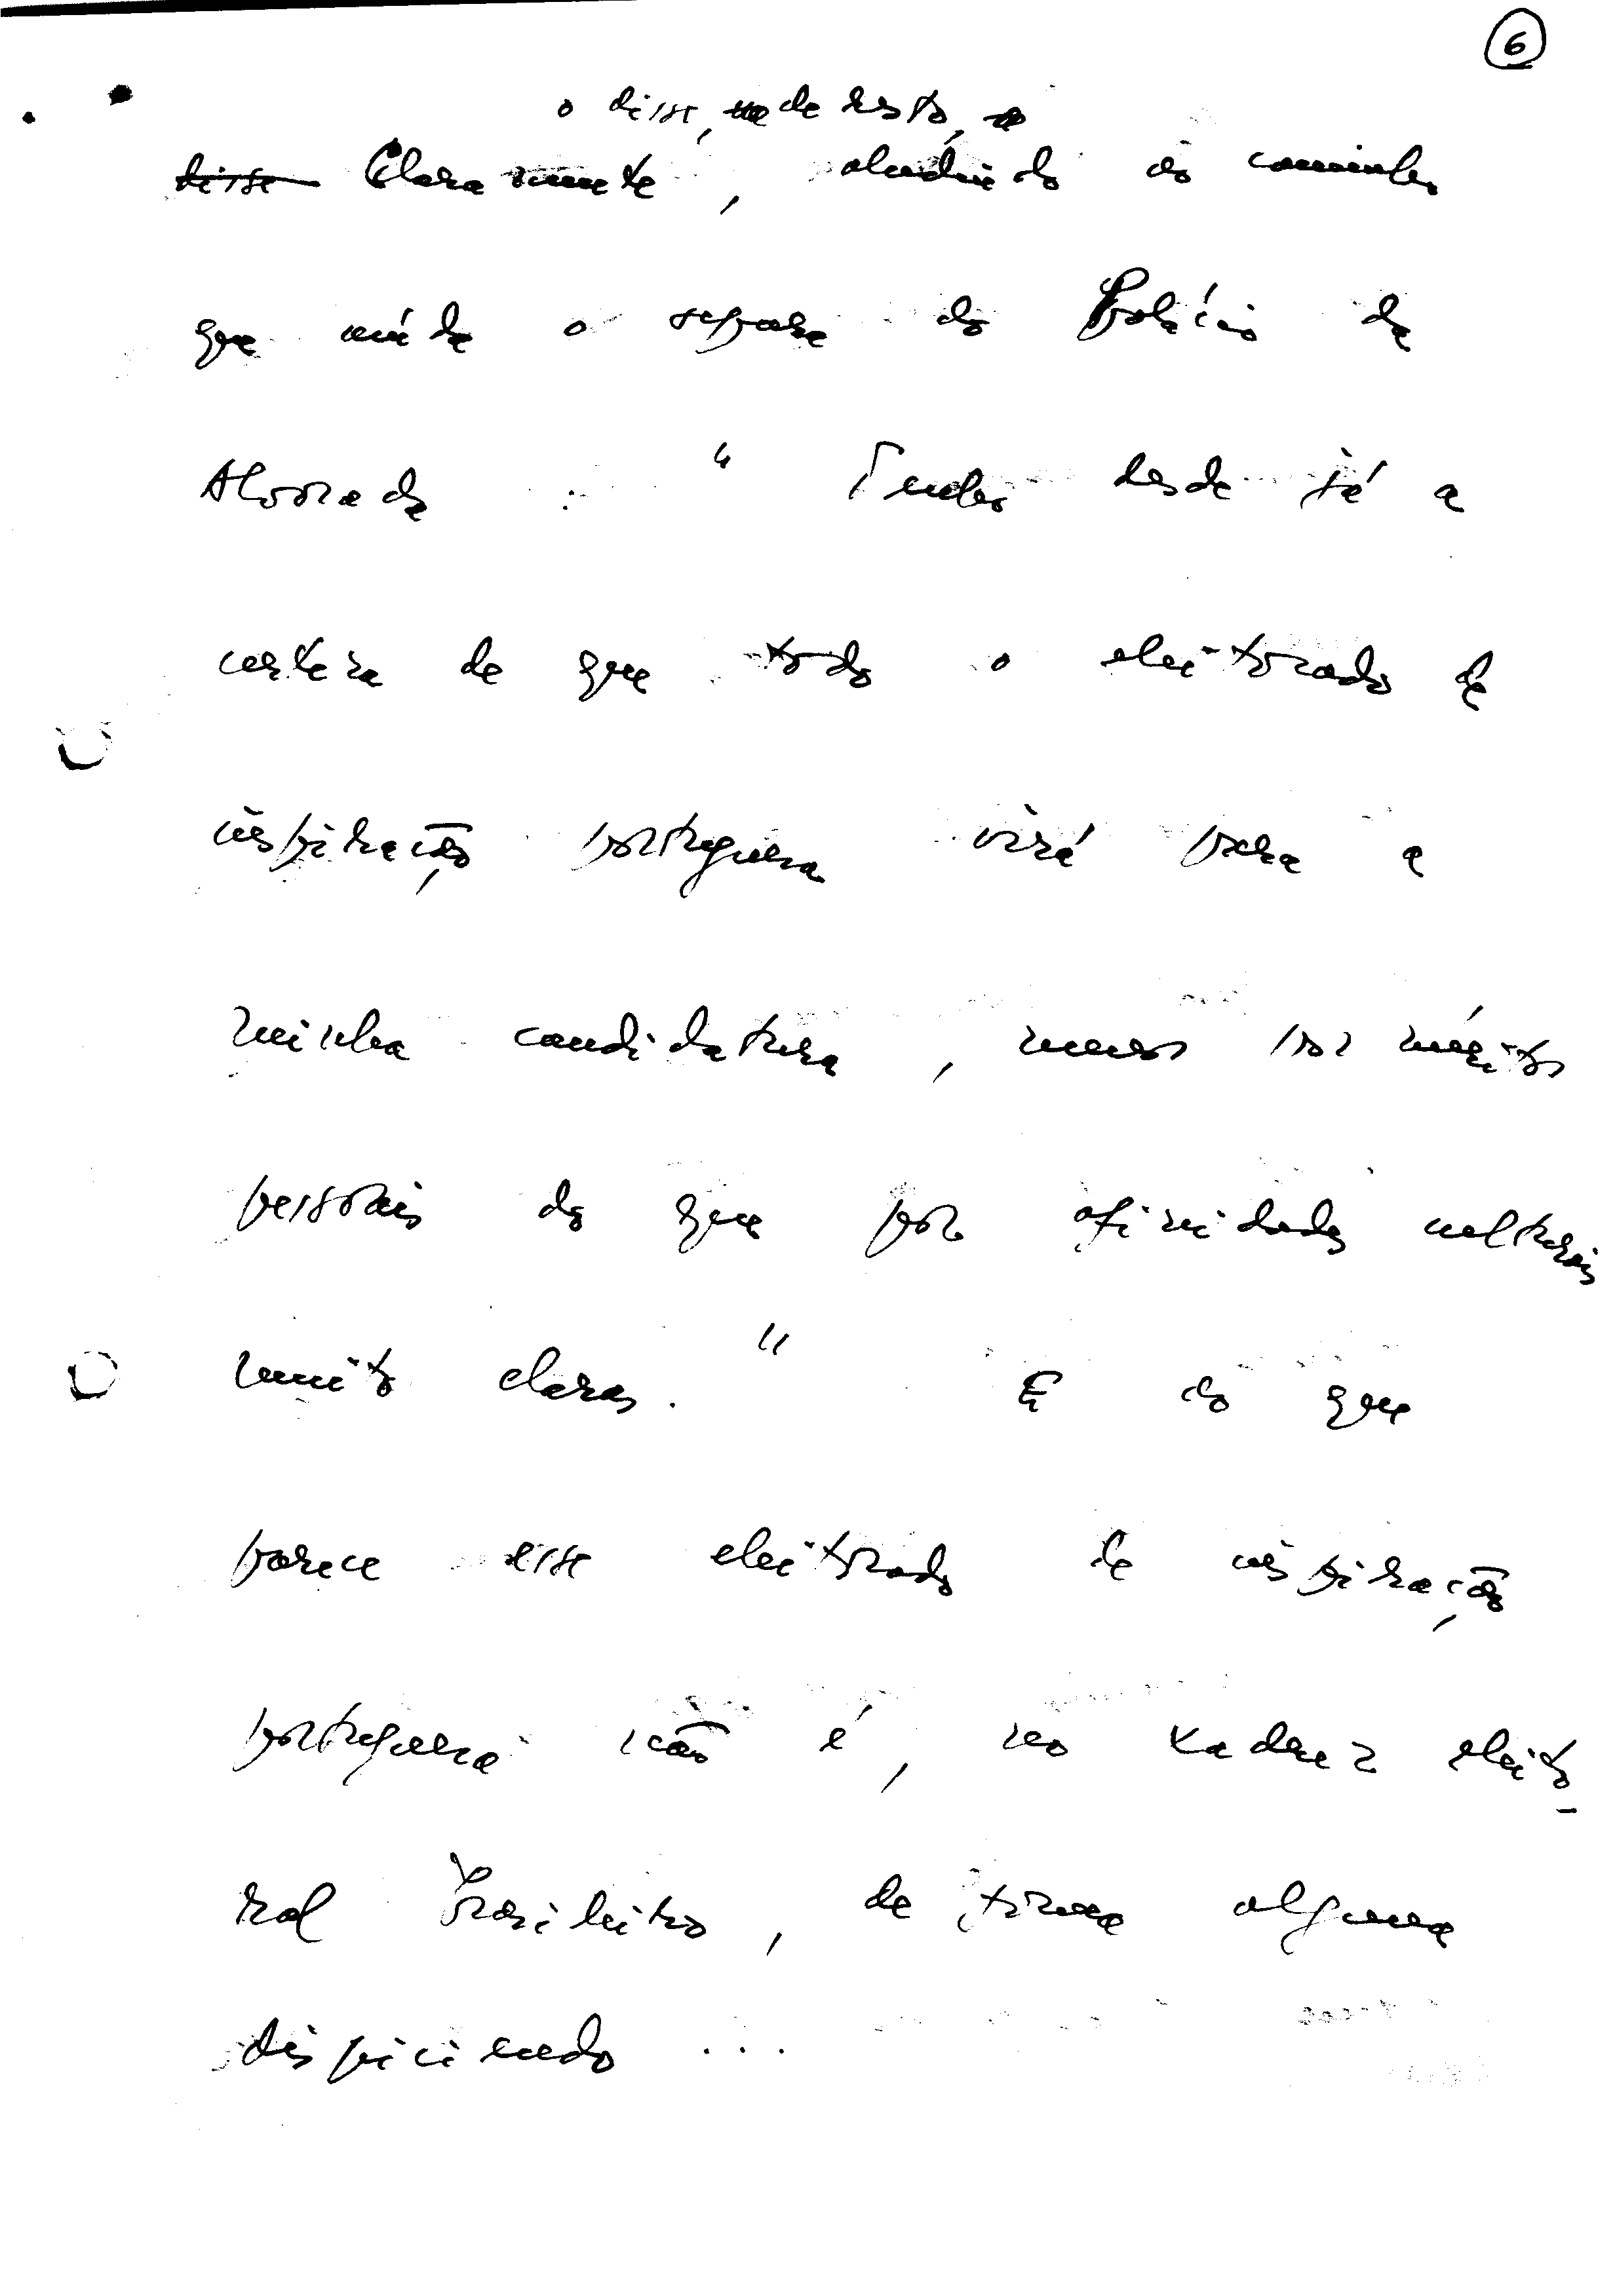 6
o disse, de resto,
disse Claramente, aludindo ao caminho
que ainda o separa do Palácio da
Alvorada : " Tenho desde já a
certeza de que todo o eleitorado de
inspiração portuguesa virá para a
minha candidatura, menos por méritos
pessoais do que por afinidades culturais
muito claras. " E ao que
parece esse eleitorado de inspiração
portuguesa não é, no xadrez eleito-
ral brasileiro, de forma alguma
dispiciendo ...